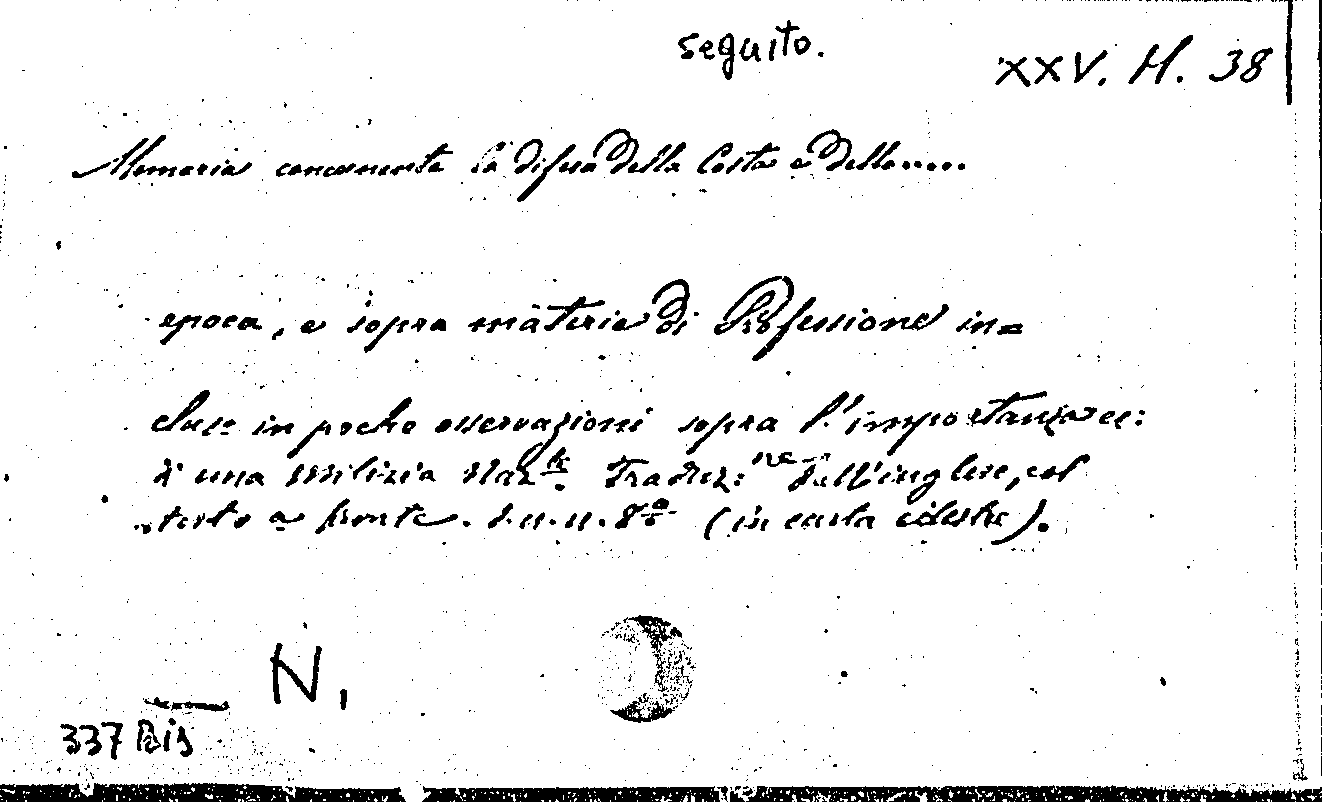 seguito.
XXV. H. 38
Memoria concernente la difesa della Costa e della.....
epoca, e sopra materie di Professione in=
cluse in poche osservazioni sopra l'importanza ec:
d'una Milizia Naz.le Traduz:ne dall'inglese, col
testo a fronte. 8.o (in carta celeste).
N,
337 Bis